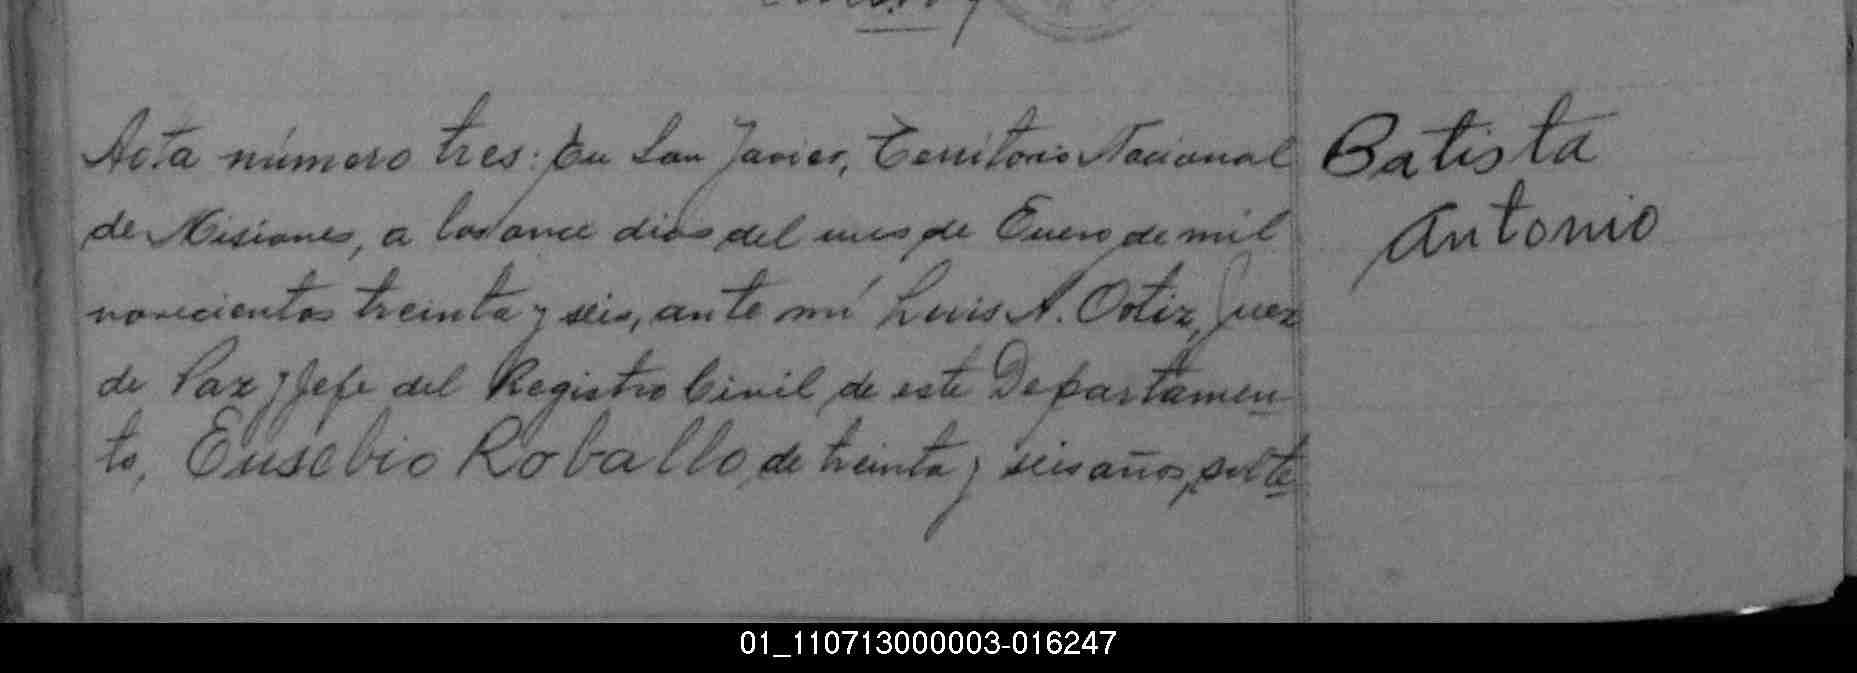 Acta número tres: En San Javier, Territorio Nacional
de Misiones, a los once dias del mes de Enero de mil
novecientos treinta y seis, ante mi Luis A. Ortiz, Juez
de Paz y Jefe del Registro Civil de este Departamen-
to, Eusebio Roballo, de treinta y seis años, solte-
Batista
Antonio
01_110713000003-016247